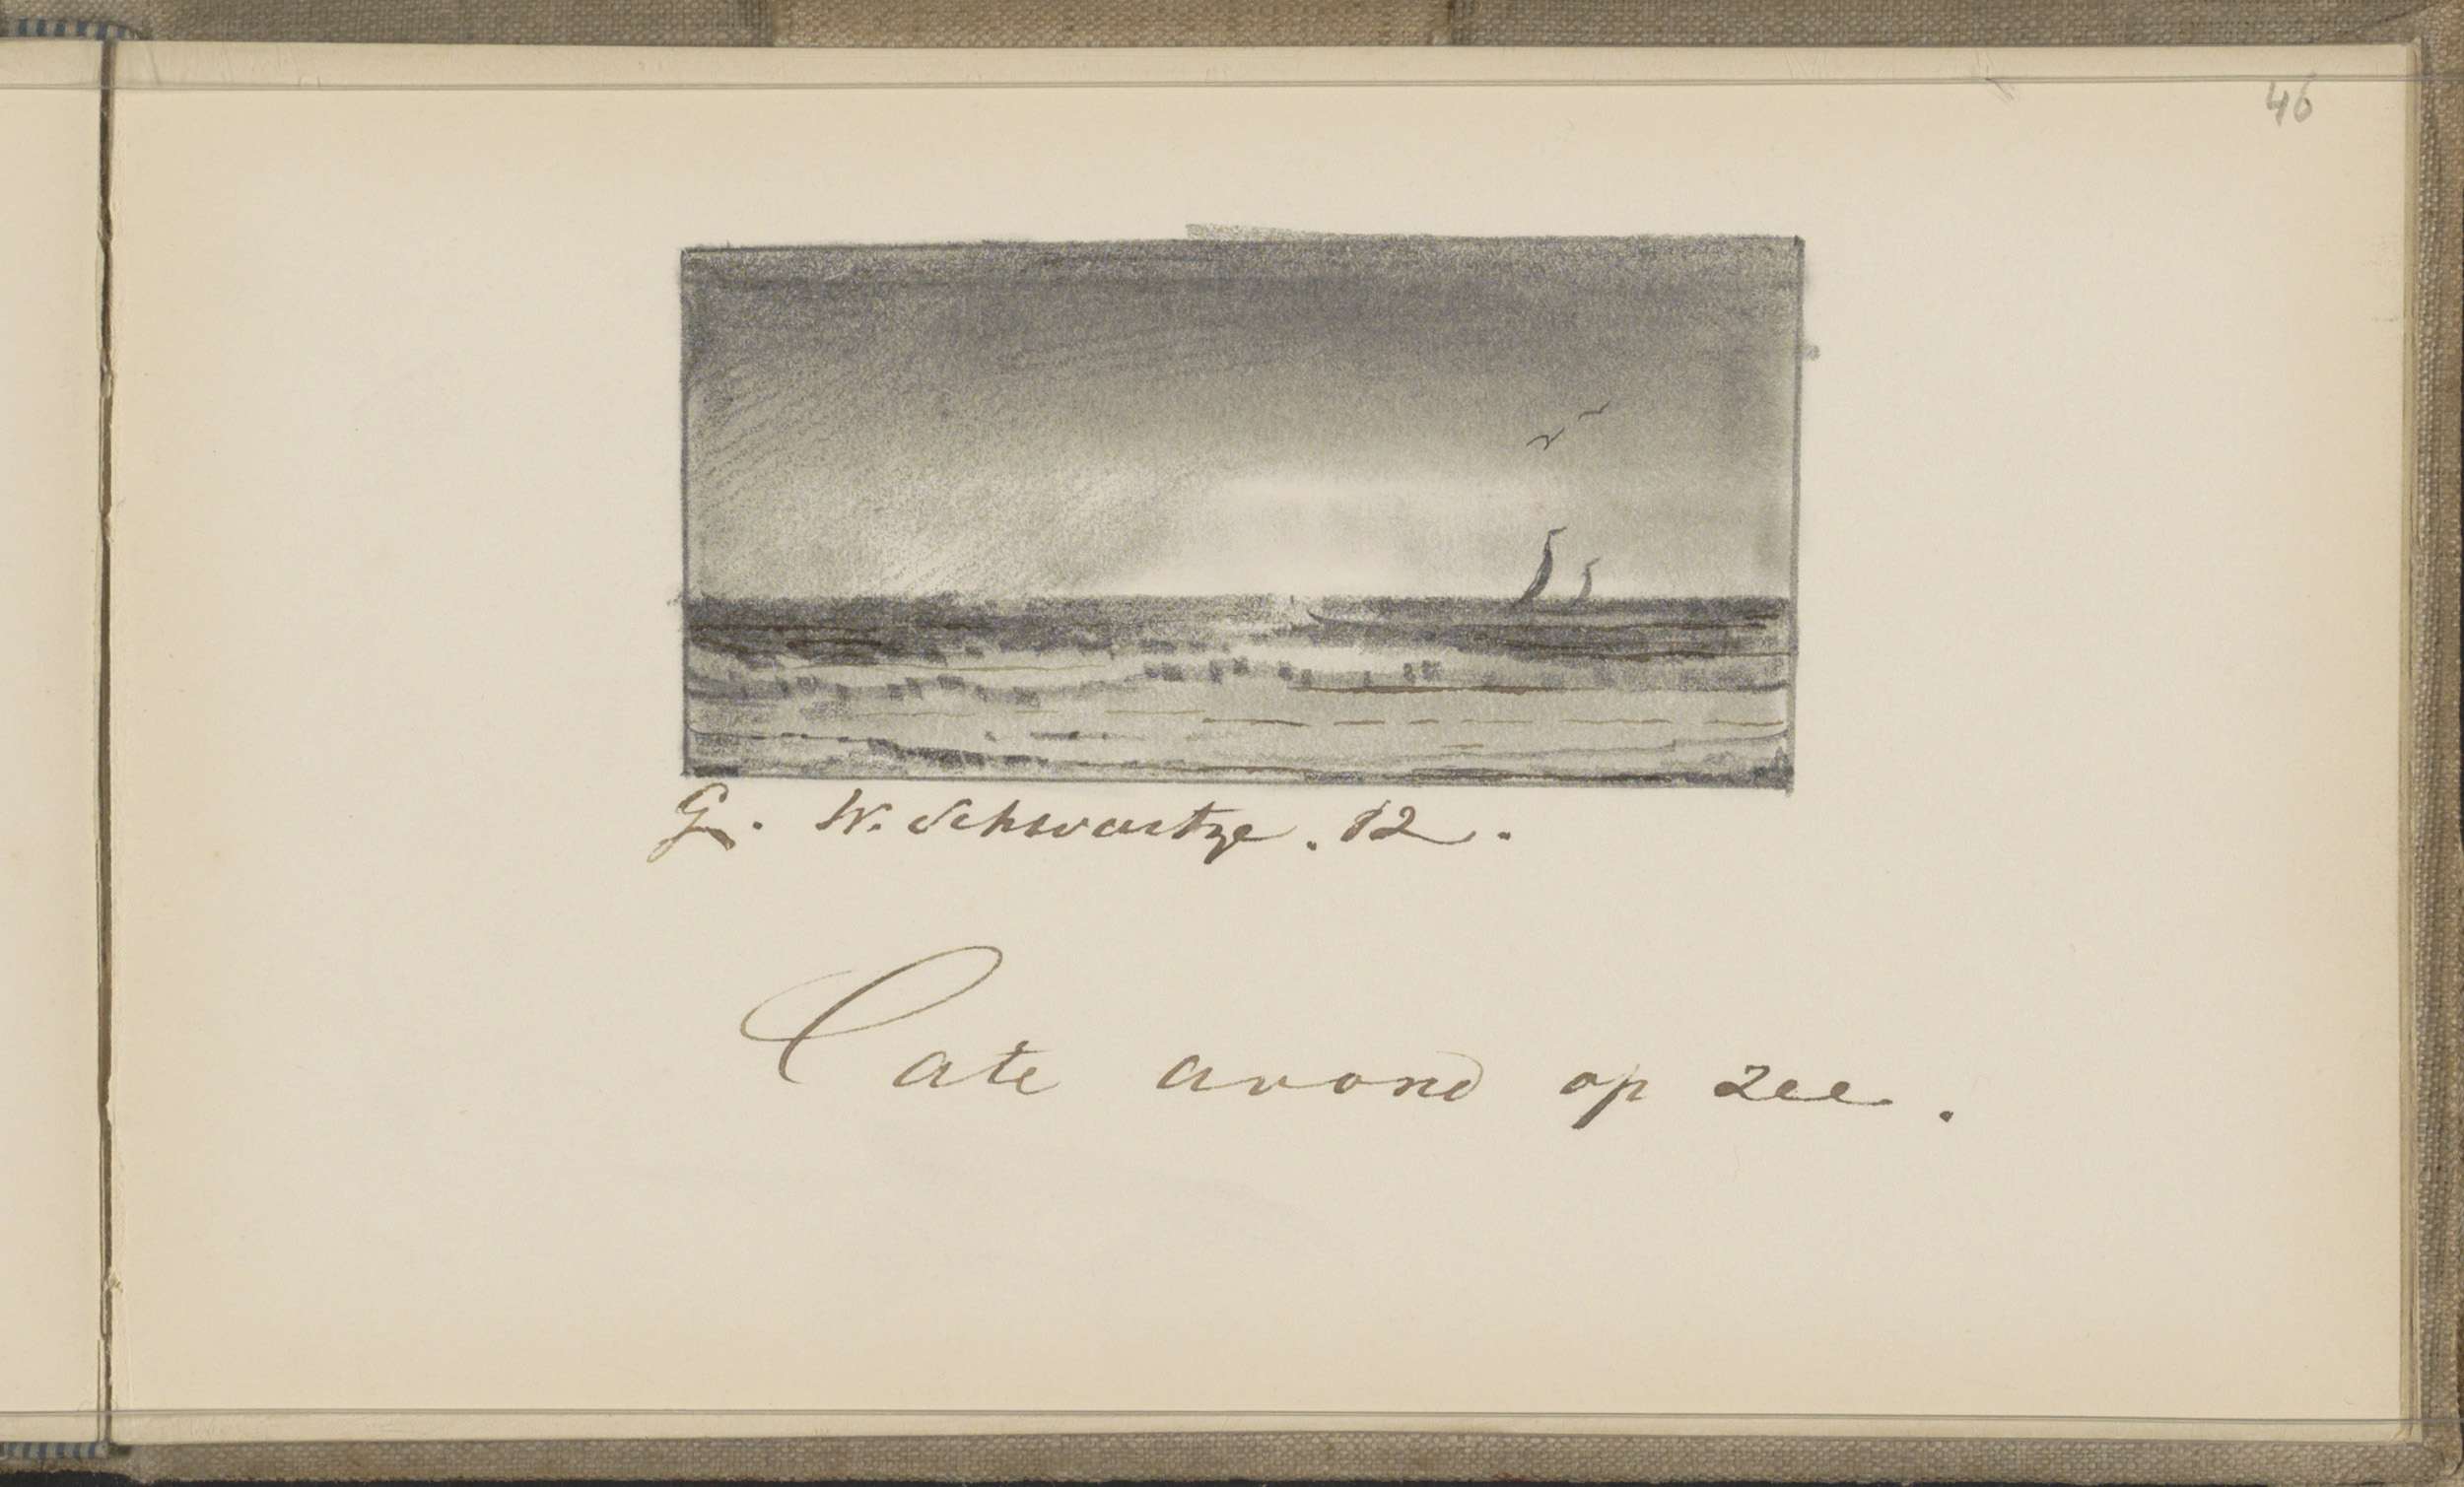 46
G. W. Schwartze. 12.
Late avond op zee.